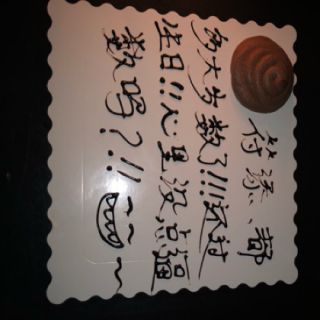 符添、都
多大岁数了!!!还过
生日!!心里没点逼
数吗?!!